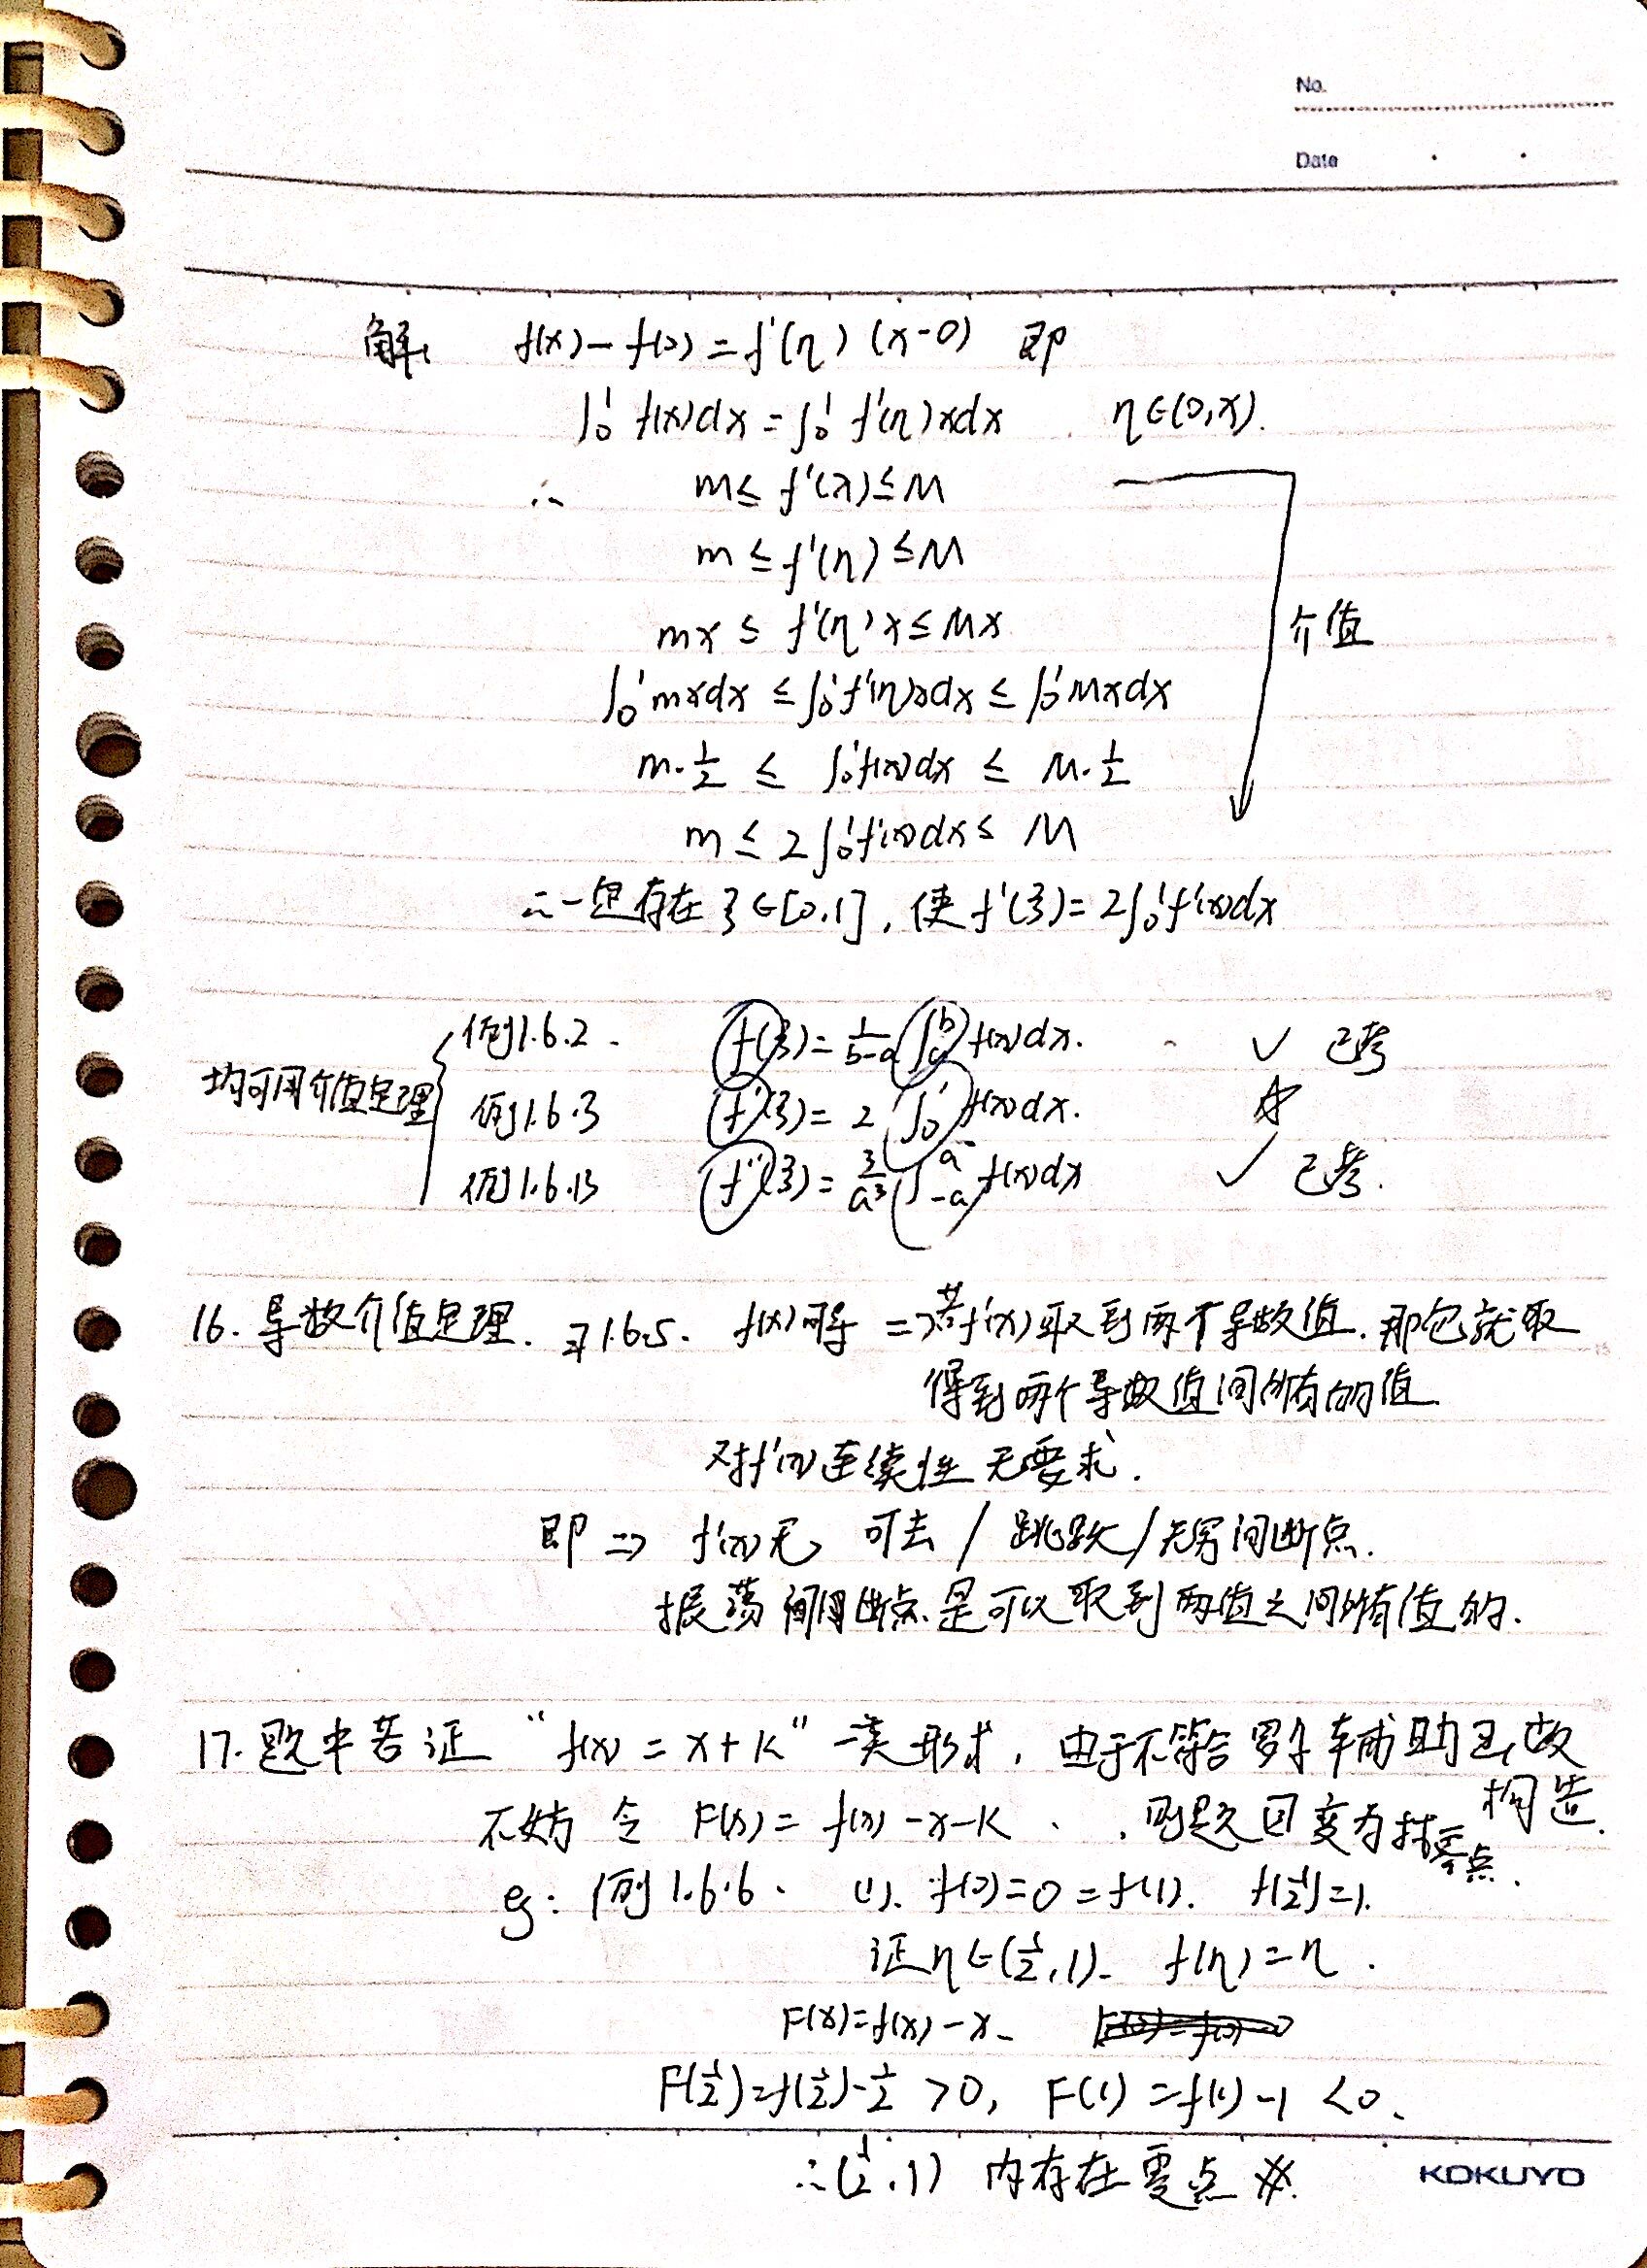 No.
Date
解: f(x)-f(0)=f'(η)(x-0) 即
∫₀¹ f(x)dx=∫₀¹ f'(η)xdx η∈(0,x).
∴ m≤f'(x)≤M
m≤f'(η)≤M
mx≤f'(η)x≤Mx
介值
∫₀¹mxdx≤∫₀¹f'(η)xdx≤∫₀¹Mxdx
m·1/2 ≤ ∫₀¹f(x)dx ≤ M·1/2
m≤2∫₀¹f(x)dx≤ M
∴一定存在ξ∈[0,1],使f'(ξ)=2∫₀¹f(x)dx
均可用介值定理
例1.6.2. f(ξ)=1/(b-a)∫ₐᵇf(x)dx. ✓ 已考
例1.6.3 f'(ξ)=2∫₀¹f(x)dx. ☆
例1.6.13 f''(ξ)=3/a³∫₋ₐᵃf(x)dx ✓ 已考.
16. 导数介值定理. 习1.6.5. f(x)可导 =>若f'(x)取到两个导数值.那它就取
得到两个导数值间所有的值
对f'(x)连续性无要求.
即 => f'(x)无 可去/跳跃/无穷间断点.
振荡间断点是可以取到两值之间所有值的.
17. 题中若证 “f(x)=x+k” 一类形式, 由于不符合罗尔辅助函数
构造.
不妨令 F(x)=f(x)-x-k. ,则题目变为找零点.
eg: 例1.6.6. (1). f(0)=0=f(1). f(1/2)=1.
证η∈(1/2,1). f(η)=η.
F(x)=f(x)-x.
F(1/2)=f(1/2)-1/2 >0, F(1)=f(1)-1 <0.
∴(1/2,1) 内存在零点 #.
KOKUYO